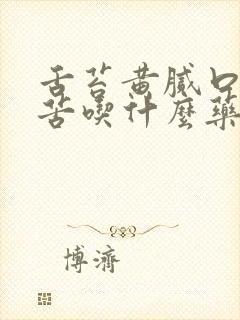 舌苔黄腻口
苦喫什麼藥
博濟